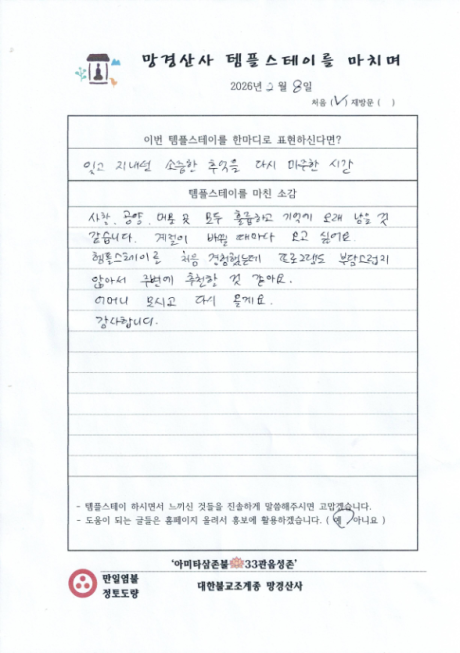 망경산사 템플스테이를 마치며
2026년 2월 8일
처음 (✓) 재방문 ( )
이번 템플스테이를 한마디로 표현하신다면?
잊고 지내던 소중한 추억을 다시 마주한 시간
템플스테이를 마친 소감
사찰, 공양, 머문 곳 모두 훌륭하고 기억에 오래 남을 것
같습니다. 계절이 바뀔 때마다 오고 싶어요.
템플스테이를 처음 경험했는데 프로그램도 부담스럽지
않아서 주변에 추천할 것 같아요.
어머니 모시고 다시 올게요.
감사합니다.
- 템플스테이 하시면서 느끼신 것들을 진솔하게 말씀해주시면 고맙겠습니다.
- 도움이 되는 글들은 홈페이지 올려서 홍보에 활용하겠습니다. ( 예 아니요 )
'아미타삼존불 33관음성존'
만일염불
정토도량
대한불교조계종 망경산사